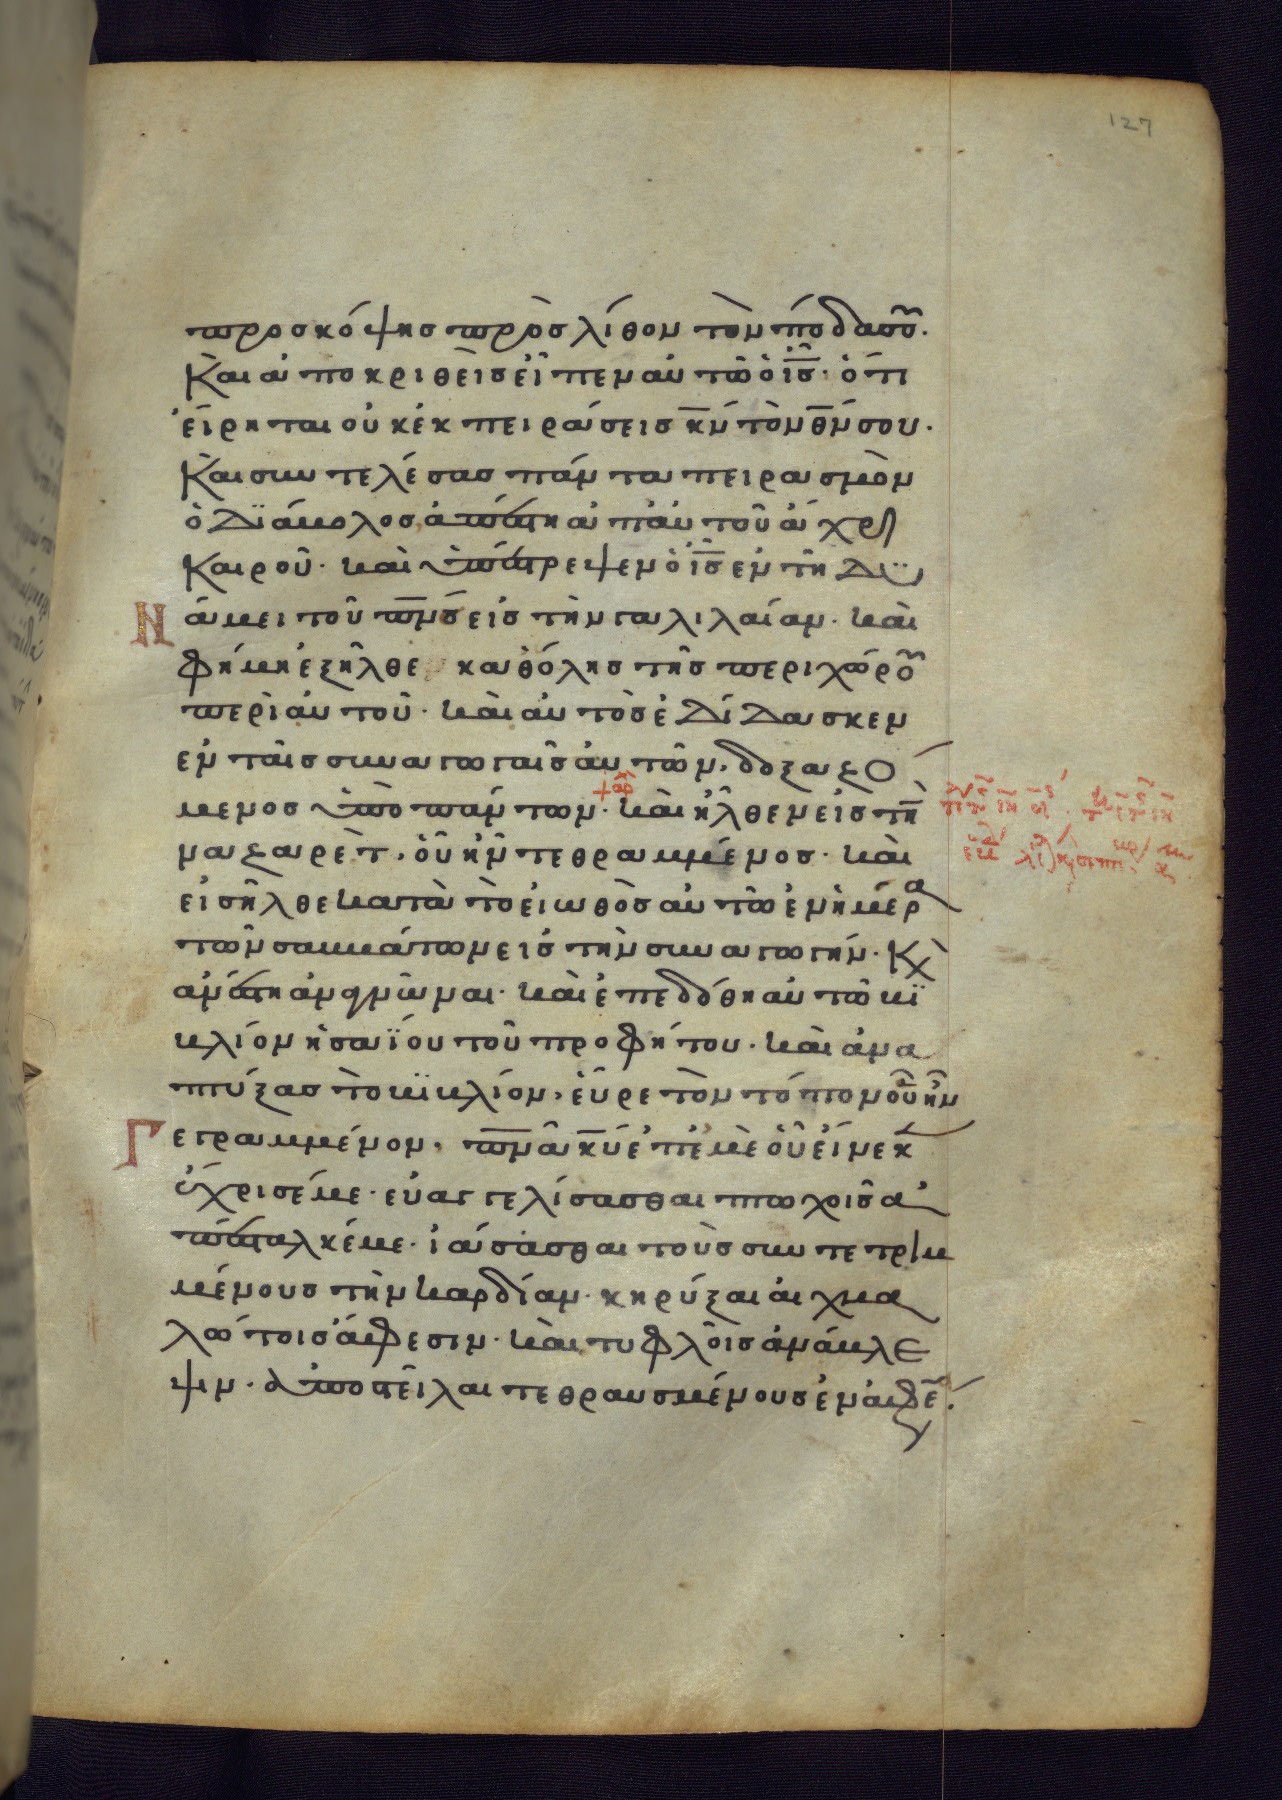 127
προσκόψησ πρὸσ λίθον τὸν πόδα σου.
Καὶ ἀποκριθεὶσ εἶπεν αὐτῶ ὁ ι̅ς̅· ὅτι
εἴρηται οὐκ ἐκπειράσεισ κ̅ν̅ τὸν θ̅ν̅ σου.
Καὶ συντελέσασ πάντα πειρασμὸν
ὁ Διάβολοσ, ἀπέστη ἀπ' αὐτοῦ ἄχρι
Καιροῦ· καὶ ὑπέστρεψεν ὁ ι̅ς̅ ἐν τῆ Δυ
νάμει τοῦ π̅ν̅ς̅ εἰσ τὴν γαλιλαίαν· καὶ
φήμη ἐξῆλθε καθόλησ τῆσ περιχώρου
περὶ αὐτοῦ· καὶ αὐτὸσ ἐΔίΔασκεν
ἐν ταῖσ συναγωγαῖσ αὐτῶν, δοξαζό
μενοσ ὑπὸ πάντων· + ἀρ καὶ ἦλθεν εἰσ τὴ
ναζαρὲτ, οὗ ἦν τεθραμμένοσ· καὶ
εἰσῆλθε κατὰ τὸ εἰωθὸσ αὐτῶ ἐν ἡμέρα
τῶν σαββάτων εἰσ τὴν συναγωγήν· Κὶ
ἀνέστη ἀναγνῶναι· καὶ ἐπεδόθη αὐτῶ βϊ
βλίον ἡσαΐου τοῦ προφήτου· καὶ ἀνα
πτύξασ τὸ βϊβλίον, εὗρε τὸν τόπον οὗ ἦν
Γεγραμμένον, π̅ν̅α̅ κ̅υ̅ ἐπ' ἐμὲ οὗ εἵνεκ
ἔχρισέ με· εὐαγγελίσασθαι πτωχοῖσ ἀ
πέσταλκέ με· ἰάσασθαι τοὺσ συντετριμ
μένουσ τὴν καρδίαν· κηρύξαι αἰχμα
λώτοισ ἄφεσιν· καὶ τυφλοῖσ ἀνάβλε
ψιν· ἀποστεῖλαι τεθραυσμένουσ ἐν ἀφέ